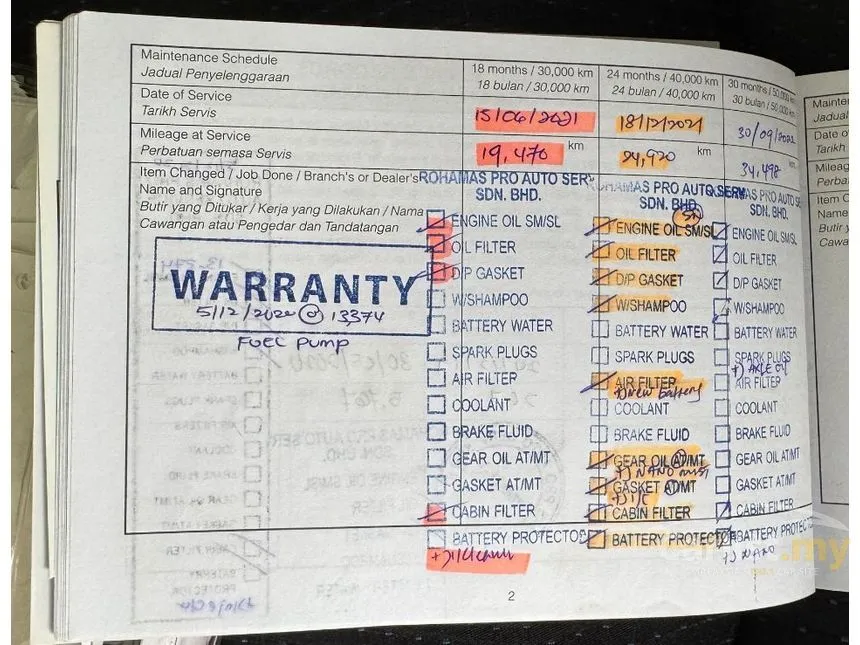 Maintenance Schedule
Jadual Penyelenggaraan
18 months / 30,000 km
18 bulan / 30,000 km
24 months / 40,000 km
24 bulan / 40,000 km
30 months / 50,000 km
30 bulan / 50,000 km
Date of Service
Tarikh Servis
15/06/2021
18/12/2021
30/09/2022
Mileage at Service
Perbatuan semasa Servis
19,470 km
24,920 km
34,498
Item Changed / Job Done / Branch's or Dealer's
Name and Signature
Butir yang Ditukar / Kerja yang Dilakukan / Nama
Cawangan atau Pengedar dan Tandatangan
WARRANTY
5/12/2020 @ 13374
FUEL PUMP
ROHAMAS PRO AUTO SERV
SDN. BHD.
ENGINE OIL SM/SL
OIL FILTER
D/P GASKET
W/SHAMPOO
BATTERY WATER
SPARK PLUGS
AIR FILTER
COOLANT
BRAKE FLUID
GEAR OIL AT/MT
GASKET AT/MT
CABIN FILTER
BATTERY PROTECTOR
OHAMAS PRO AUTO SERV
SDN. BHD.
ENGINE OIL SM/SL
OIL FILTER
D/P GASKET
W/SHAMPOO
BATTERY WATER
SPARK PLUGS
AIR FILTER
+) New battery
COOLANT
BRAKE FLUID
GEAR OIL AT/MT
GASKET AT/MT
CABIN FILTER
BATTERY PROTECTOR
MAS PRO AUTO SERV
SDN. BHD.
ENGINE OIL SM/SL
OIL FILTER
D/P GASKET
W/SHAMPOO
BATTERY WATER
SPARK PLUGS
+) AXLE OIL
AIR FILTER
COOLANT
BRAKE FLUID
GEAR OIL AT/MT
GASKET AT/MT
CABIN FILTER
BATTERY PROTECTO
+) NANO
2
Mainten
Jadual
Date o
Tarikh
Mileag
Perba
Item C
Name
Butir y
Cawa
.my